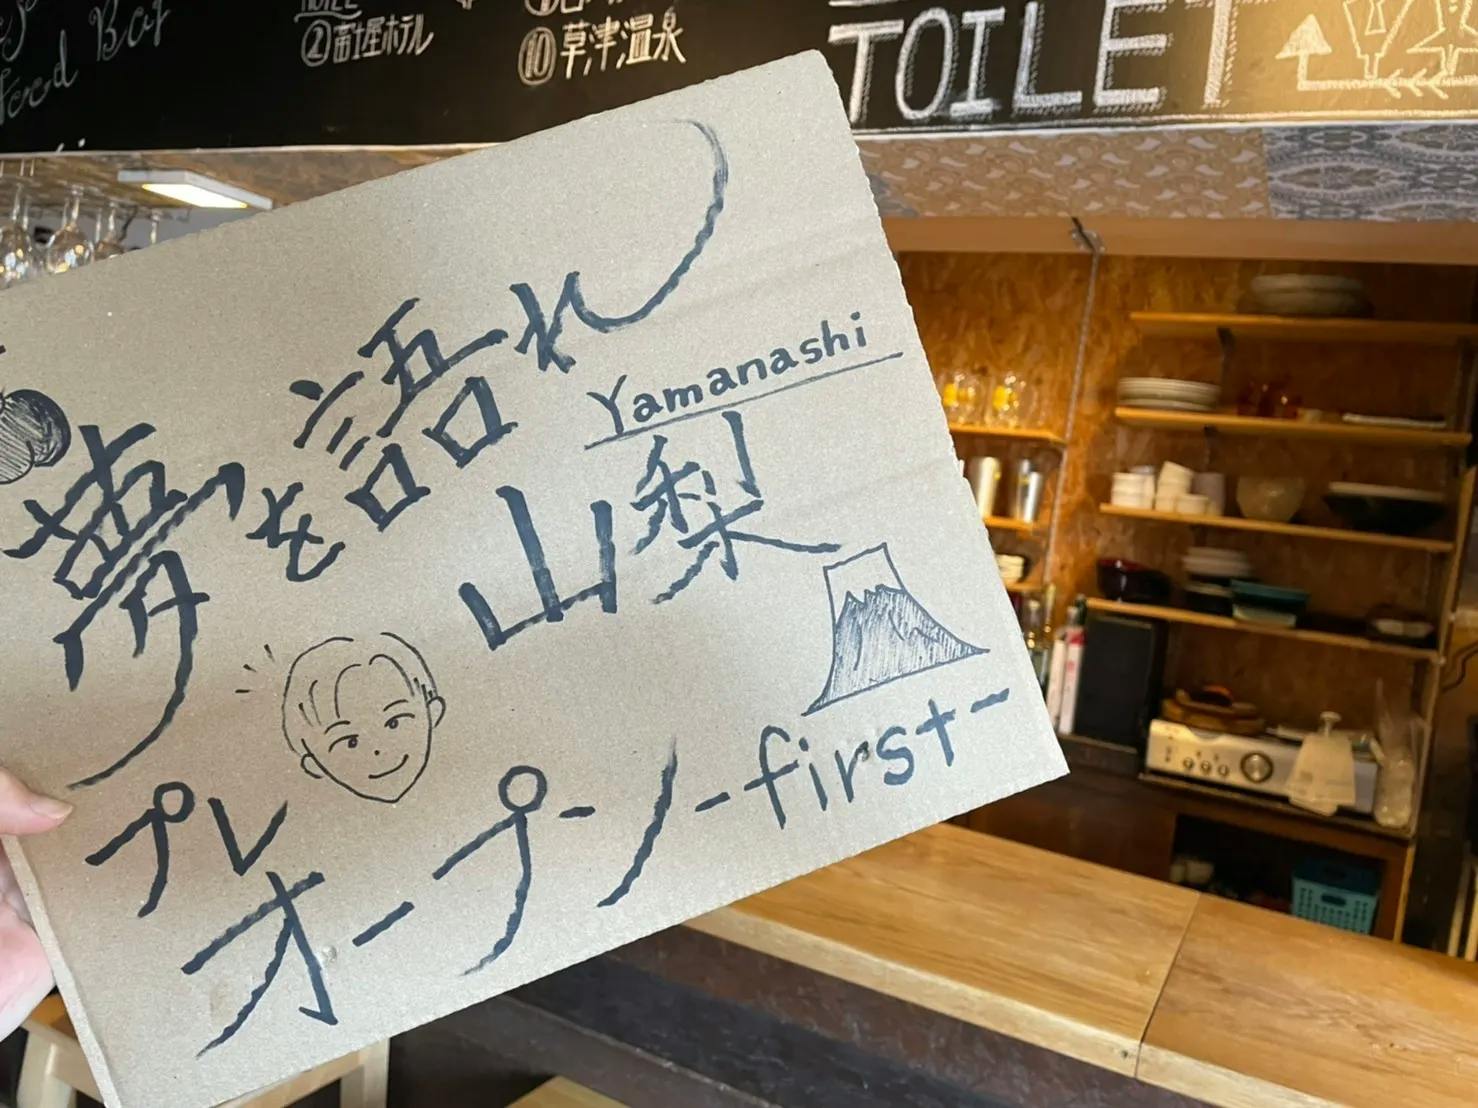 Food Bar
②富士屋ホテル
⑩草津温泉
TOILET
夢を語れ
Yamanashi
山梨
プレ
オープン -first-